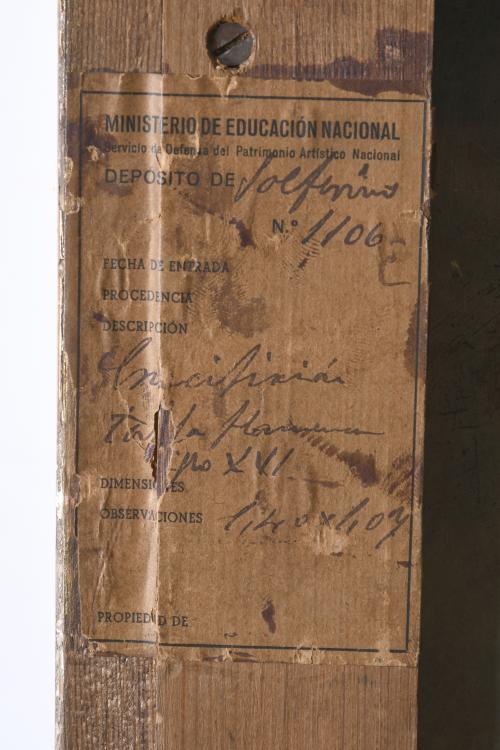 MINISTERIO DE EDUCACIÓN NACIONAL
Servicio de Defensa del Patrimonio Artístico Nacional
DEPÓSITO DE Solferino
N.º 1106
FECHA DE ENTRADA
PROCEDENCIA
DESCRIPCIÓN
Crucifixión
Tabla flamenca
XVI
DIMENSIONES
OBSERVACIONES 1,40 x 1,07
PROPIEDAD DE